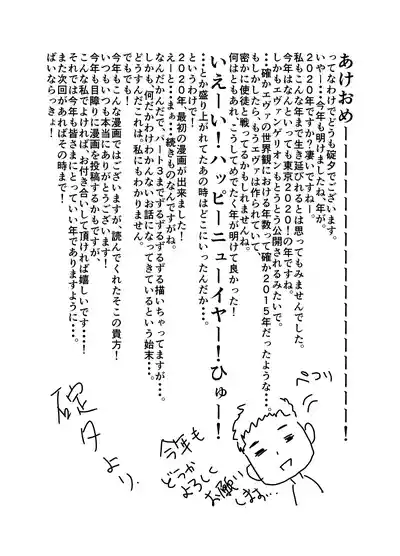 あけおめーーーーーーーーーーーー！
ってなわけでどうも碇夕でございます。
いやー・・今年も明けましたね一年が。
2020年ですか？凄いですねー。
私もこんな年まで生き延びれるとは思ってもみませんでした。
今年はなんといっても東京2020！の年ですね。
しかもエヴァンゲリオンもとうとう公開されるみたいで。
・・確かエヴァの世界観における年数って確か2015年だったような・・・。
もしかしたら、もうエヴァは作られていて
密かに使徒と戦ってるかもしれませんね。
何はともあれ、こうしてめでたく年が明けて良かった！
いえーい！ハッピーニューイヤー！ひゅー！
・・・とか盛り上がれてたあの時はどこにいったんだか・・・。
というわけで！
2020年、最初の漫画が出来ました！
えーとま・・・続きものなんですがね。
なんだかんだで、パート3までずるずるずるずる描いちゃってますが・・・
しかも、何だかわけわかんないお話になってきているという始末・・・。
どうすんだこれは、私にもわかりません。
でもでも！
今年もこんな漫画ではございますが、読んでくれたそこの貴方！
いつもいつも本当にありがとうございます！
今年も目障りに漫画を投稿するかもですが、
こんな私でよければ、お付き合いして頂ければ嬉しいです・・・！
それでは今年も皆さまにとっていい年でありますように・・・。
また次回があればその時まで！
ばいならっきょ！
ぺつり
今年も
どうか
よろしく
お願い
します…
碇夕より.